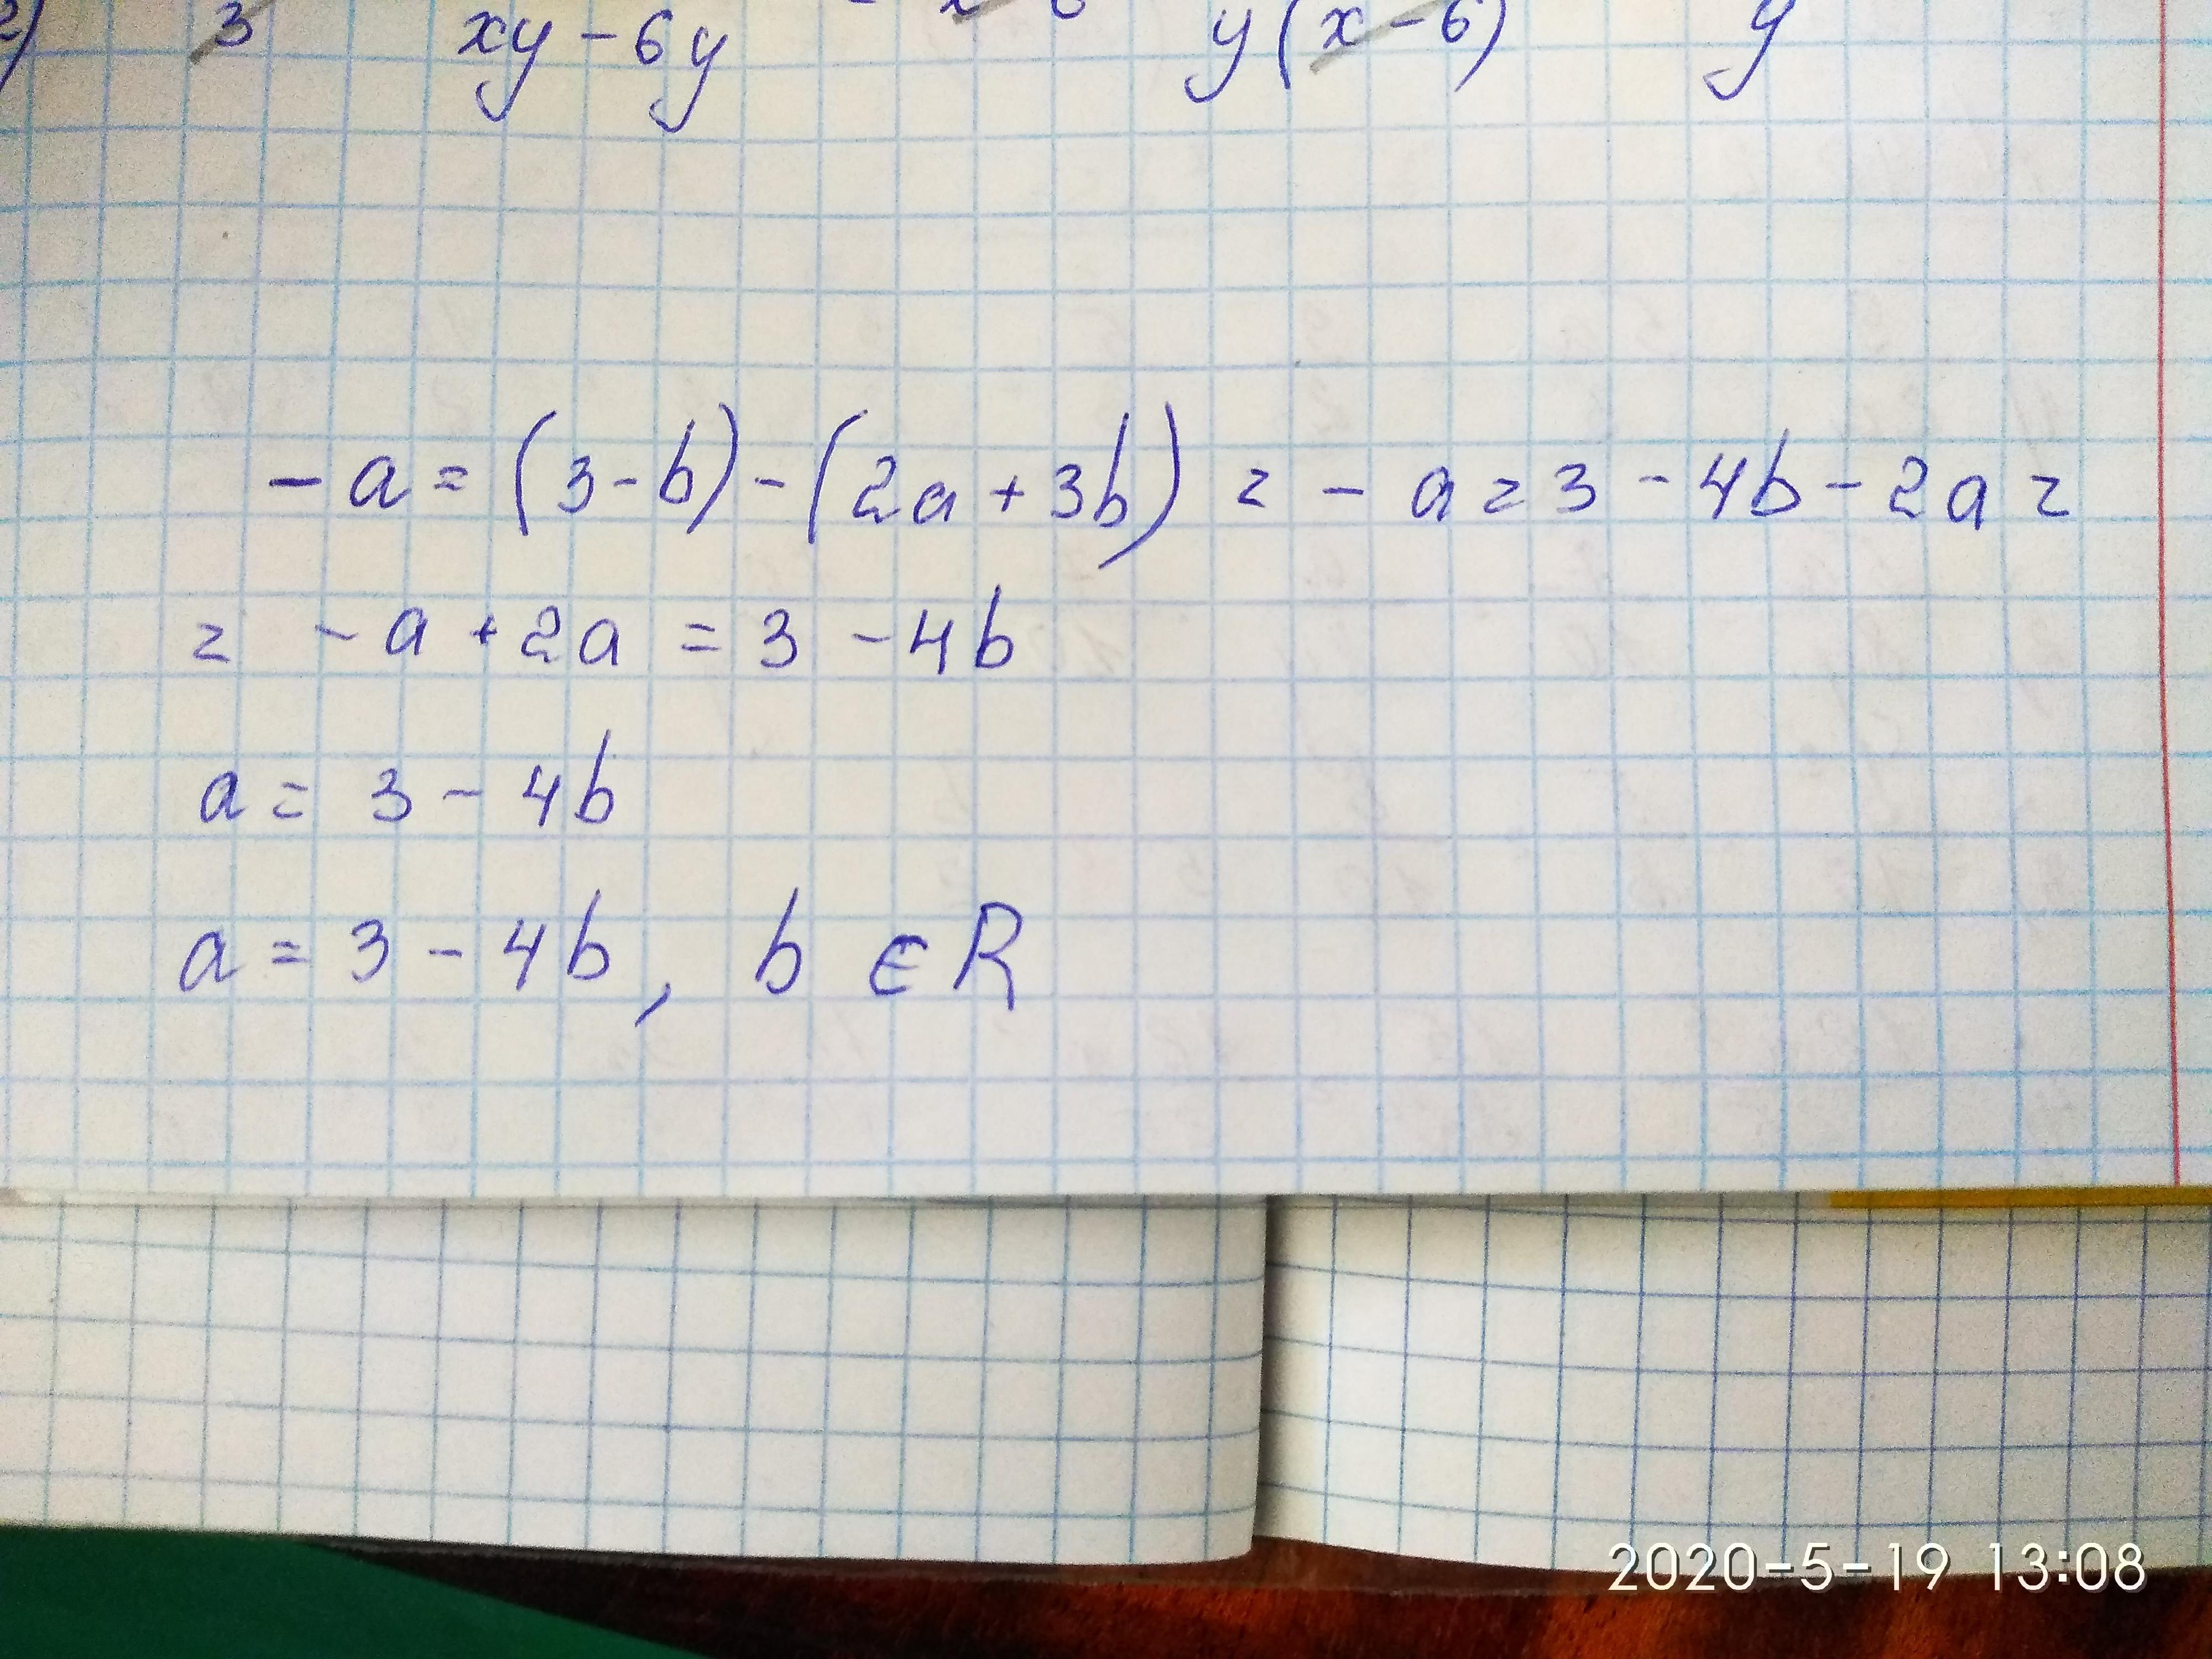 2) 3 xy - 6y y(x - 6) y
- a = (3 - b) - (2a + 3b) = - a = 3 - 4b - 2a =
= - a + 2a = 3 - 4b
a = 3 - 4b
a = 3 - 4b, b ∈ R
2020-5-19 13:08